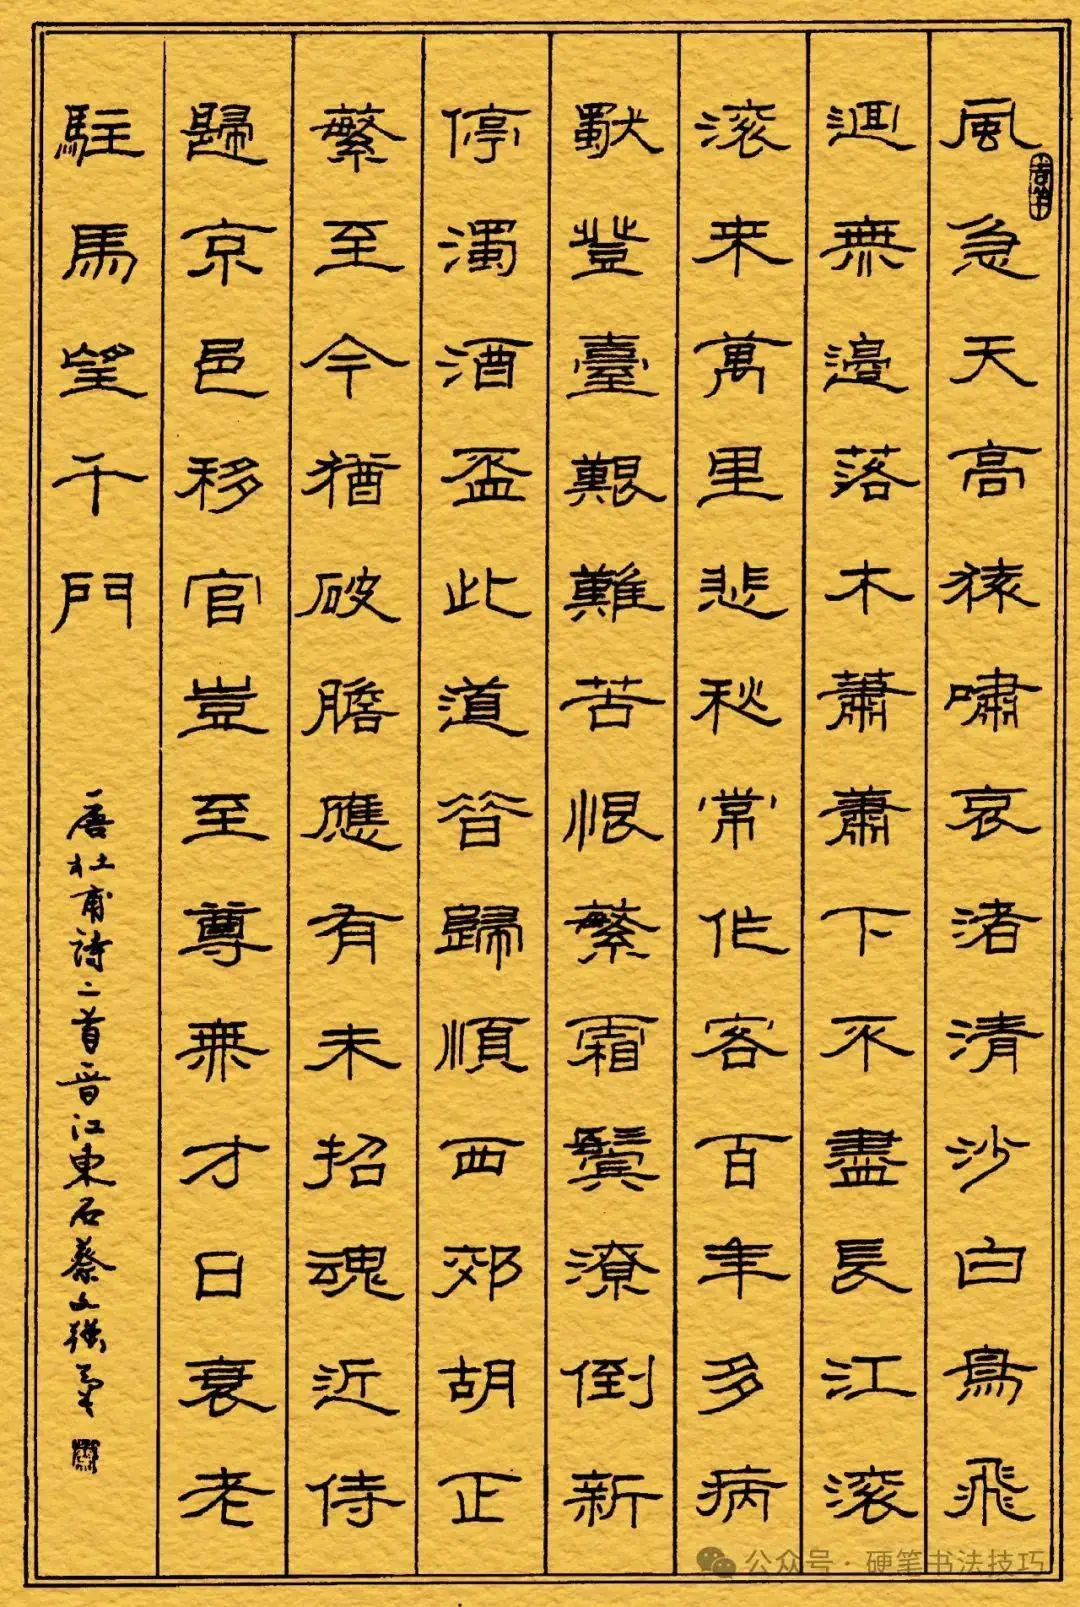 風急天高猿嘯哀渚清沙白鳥飛
迴無邊落木蕭蕭下不盡長江滚
滚来萬里悲秋常作客百年多病
獨登臺艱難苦恨繁霜鬢潦倒新
停濁酒盃此道昔歸順西郊胡正
繁至今猶破膽應有未招魂近侍
歸京邑移官豈至尊無才日衰老
駐馬望千門
唐杜甫詩二首晉江東石蔡文
公众号·硬笔书法技巧